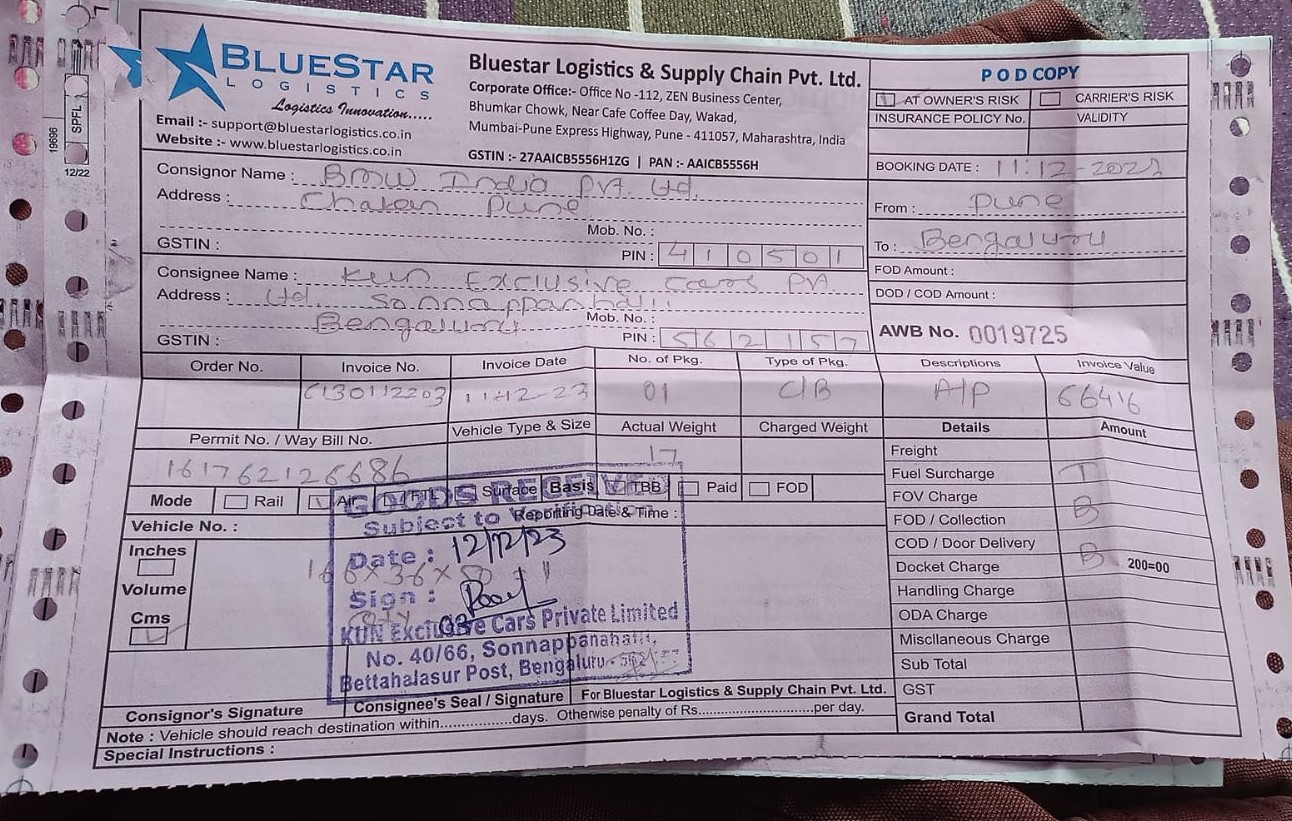 BLUESTAR
LOGISTICS
Logistics Innovation.....
Email :- support@bluestarlogistics.co.in
Website :- www.bluestarlogistics.co.in
Bluestar Logistics & Supply Chain Pvt. Ltd.
Corporate Office:- Office No -112, ZEN Business Center,
Bhumkar Chowk, Near Cafe Coffee Day, Wakad,
Mumbai-Pune Express Highway, Pune - 411057, Maharashtra, India
GSTIN :- 27AAICB5556H1ZG | PAN :- AAICB5556H
POD COPY
AT OWNER'S RISK CARRIER'S RISK
INSURANCE POLICY No. VALIDITY
19696
SPFL
12/22
BOOKING DATE : 11-12-2023
Consignor Name : BMW India Pvt Ltd.
Address : Chakan Pune
Mob. No. :
GSTIN :
PIN : 410501
From : Pune
To : Bengaluru
FOD Amount :
DOD / COD Amount :
AWB No. 0019725
Consignee Name : Kun Exclusive Cars Pvt
Address : Ltd. Sonnappanhalli
Mob. No. :
Bengaluru
GSTIN :
PIN : 562157
Order No. Invoice No. Invoice Date No. of Pkg. Type of Pkg. Descriptions Invoice Value
6130112203 11-12-23 01 C/B A/P 66416
Permit No. / Way Bill No. Vehicle Type & Size Actual Weight Charged Weight Details Amount
161762126686 17
Mode Rail Air FTL Surface Basis TBB Paid FOD
Vehicle No. : Reporting Date & Time :
Inches
Volume
Cms
Freight
Fuel Surcharge T
FOV Charge
FOD / Collection B
COD / Door Delivery
Docket Charge B 200=00
Handling Charge
ODA Charge
Miscllaneous Charge
Sub Total
GST
Grand Total
GOODS RECEIVED
Subject to Verification
Date : 12/12/23
Sign :
KUN Exclusive Cars Private Limited
No. 40/66, Sonnappanahalli,
Bettahalasur Post, Bengaluru
Consignor's Signature Consignee's Seal / Signature For Bluestar Logistics & Supply Chain Pvt. Ltd.
Note : Vehicle should reach destination within...............days. Otherwise penalty of Rs.........................per day.
Special Instructions :